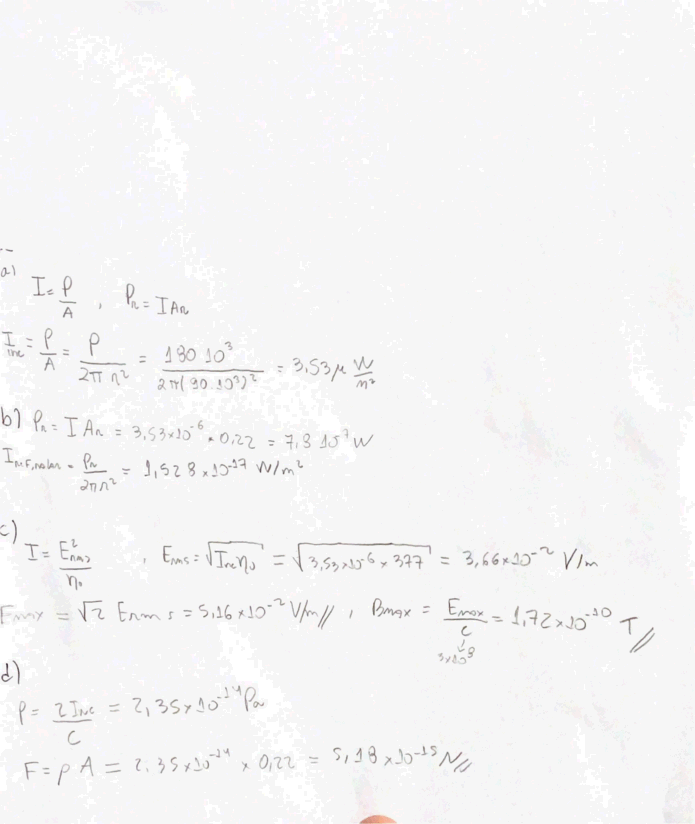 a)
I = P/A , Pr = I Ar
Iinc = P/A = P/(2π r²) = 180 10³/(2π(90.10³)²) = 3,53 μ W/m²
b) Pr = I Ar = 3,53×10⁻⁶ × 0,22 = 7,8 10⁻⁷ W
= Pr/(2π r²) = 1,528×10⁻¹⁷ W/m²
c)
I = E²rms/η₀ , Erms = √(Iinc η₀) = √(3,53×10⁻⁶ × 377) = 3,66×10⁻² V/m
Emax = √2 Erms = 5,16×10⁻² V/m // , Bmax = Emax/c = 1,72×10⁻¹⁰ T //
3×10⁸
d)
P = 2 Iinc/C = 2,35×10⁻¹⁴ Pa
F = p A = 2,35×10⁻¹⁴ × 0,22 = 5,18×10⁻¹⁵ N //